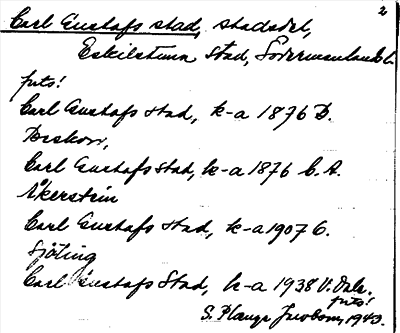 2
Carl Gustafs stad, stadsdel,
Eskilstuna stad, Södermanlands l.
Carl Gustafs stad, k-a 1876 D.
Carl Gustafs stad, k-a 1876 C. A.
Åkerstein
Carl Gustafs stad, k-a 1907 G.
Sjöling
Carl Gustafs Stad, k-a 1938 V.
S. 1943.